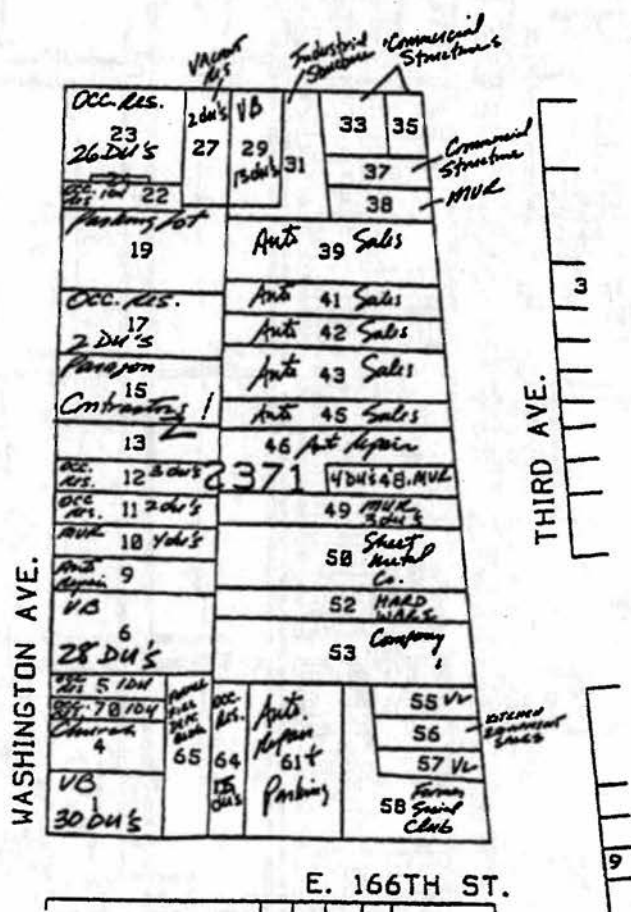 VACANT RES
Industrial Structure
Commercial Structures
OCC. RES.
23
26 DU'S
2 du's
27
VB
29
13 du's
31
33
35
Commercial Structure
37
38
MUR
OCC. RES 1DU
22
Parking Lot
19
Auto 39 Sales
OCC. RES.
17
2 DU'S
Auto 41 Sales
Auto 42 Sales
Paragon
15
Contractors
Auto 43 Sales
Auto 45 Sales
13
46 Aut Repair
OCC. RES. 12 3 du's
2371
4 DU's 48. MUR
OCC RES. 11 2 du's
49 MUR 3 du's
MUR 10 4 du's
50 Sheet Metal Co.
Auto Repair 9
52 HARD WARE
VB
6
28 DU'S
53 Company
OCC RES 5 1DU
70 1DU
Church
4
VB
1
30 DU'S
FORMER FIRE DEPT. BLDG
65
OCC. RES.
64
15 du's
Auto. Repair
61 +
Parking
55 VL
56
KITCHEN EQUIPMENT SALES
57 VL
58 Former Social Club
WASHINGTON AVE.
THIRD AVE.
3
E. 166TH ST.
9